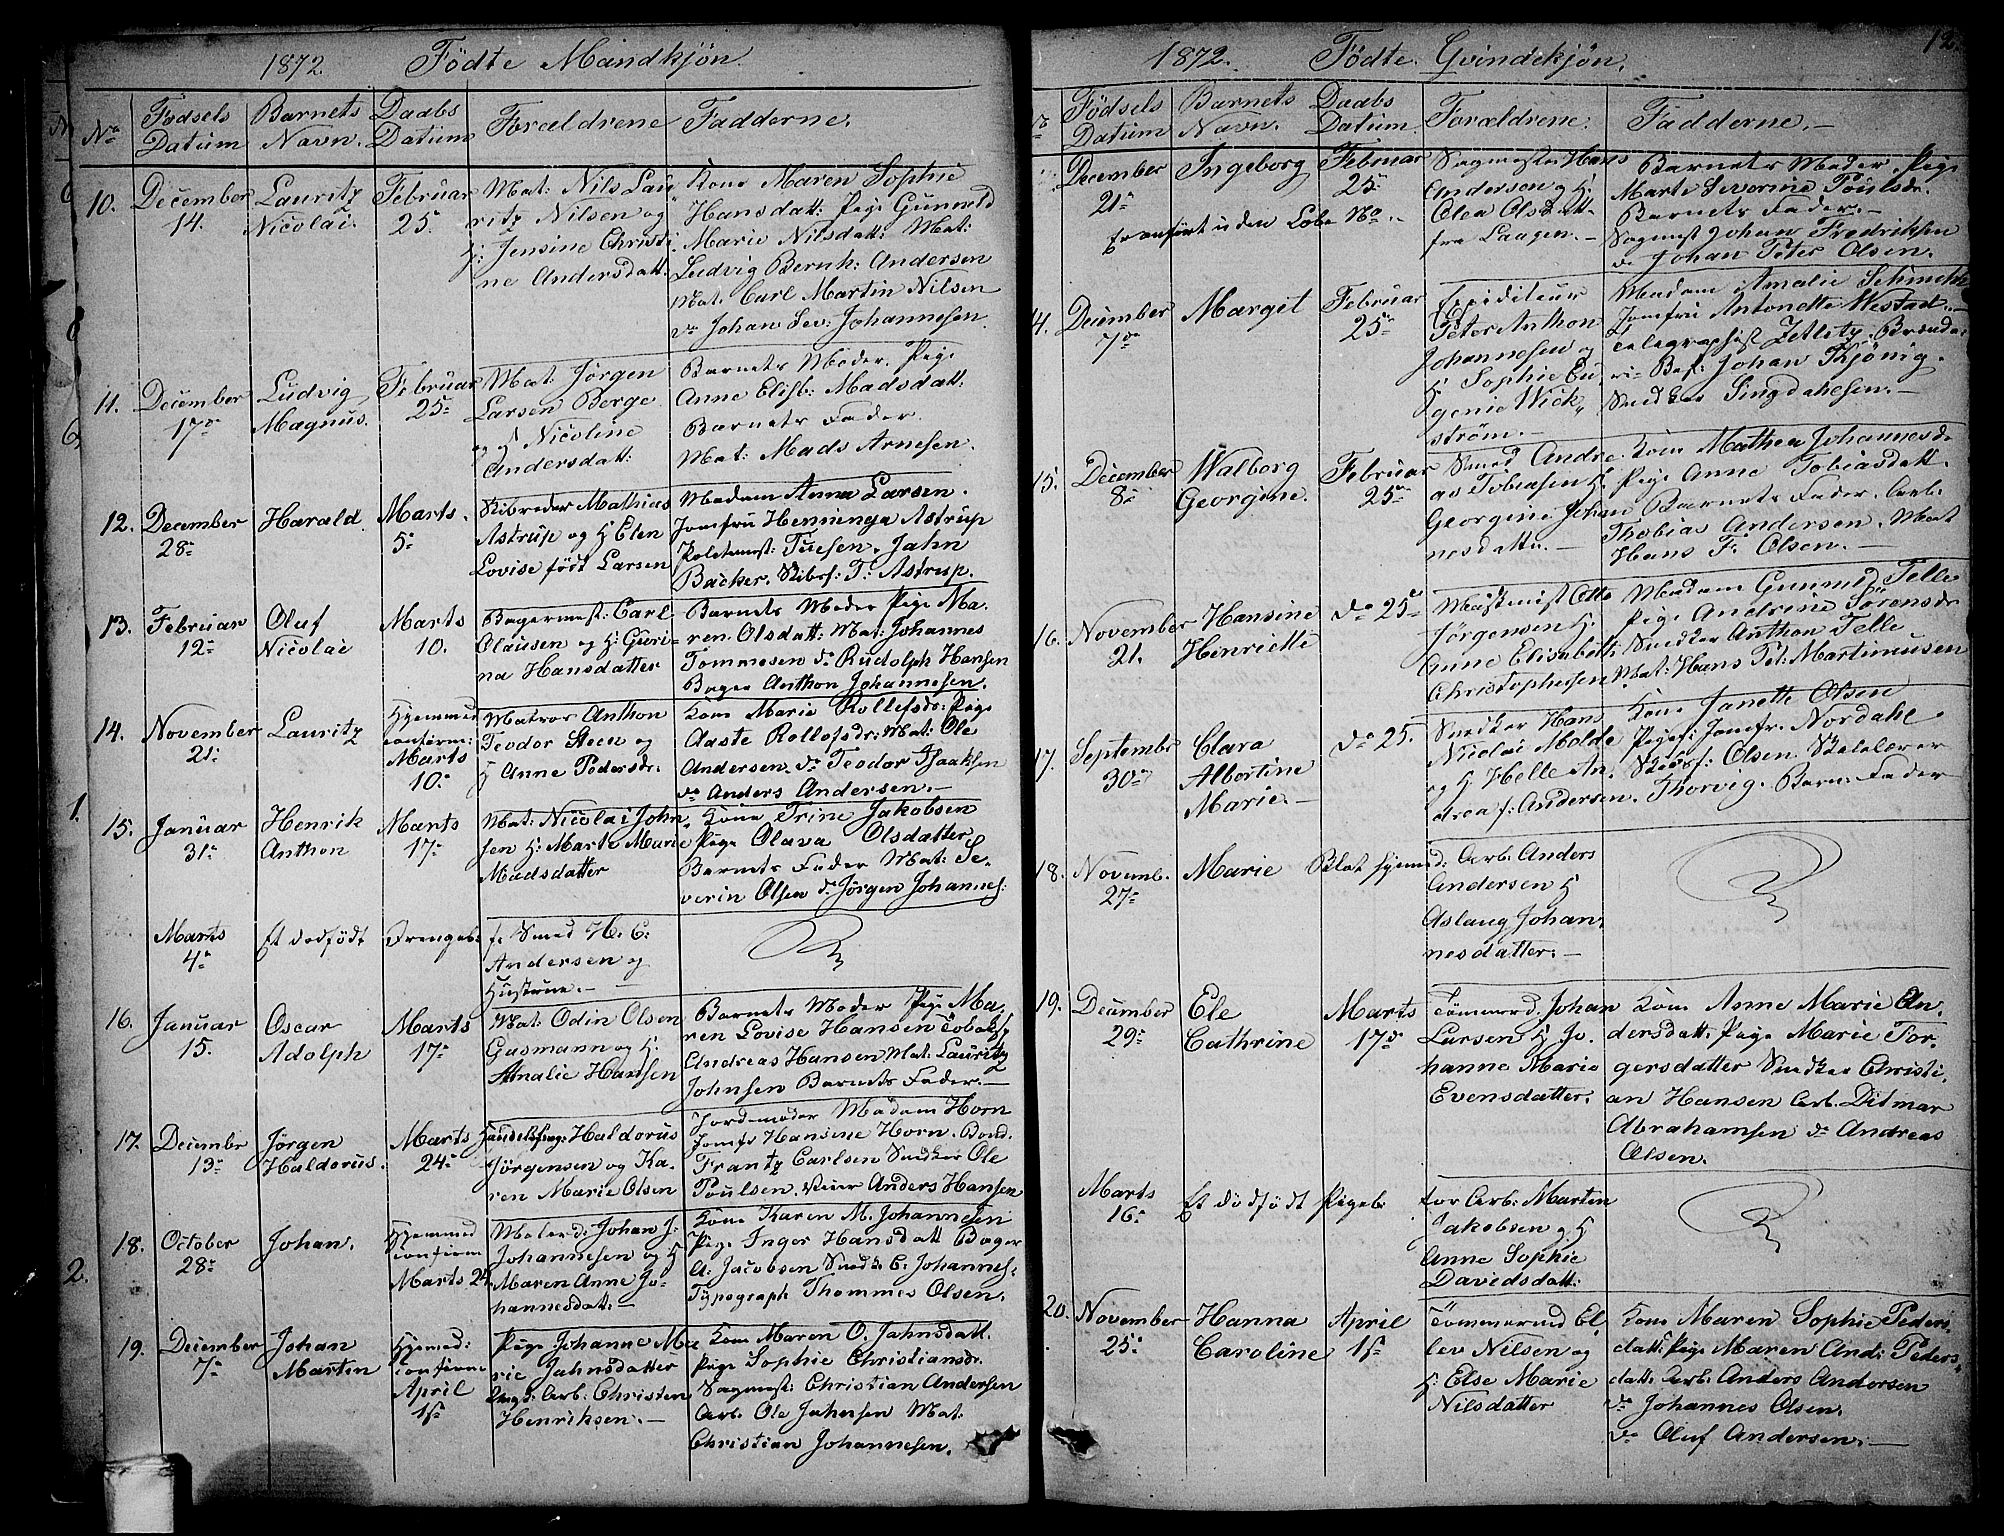 1872. Födte Mandkjön.
No
Födsels Datum
Barnets Navn.
Daabs Datum
Forældrene
Fadderne.
10.
December
14.
Lauritz
Nicolai.
Februar
25.
Mat: Nils Lau
ritz Nilsen og
H: Jensine Christi
ne Andersdatt:
Kone Maren Sophie
Hansdatt: Pige Gunneld
Marie Nilsdatt: Mat:
Ludvig Bernh: Andersen
Mat. Carl Martin Nilsen
do Johan Sev: Johannesen.
11.
December
17de
Ludvig
Magnus.
Februar
25de
Mat: Jörgen
Larsen Berge
og H Nicoline
Andersdatt:
Barnets Moder. Pige
Anne Elisb: Madsdatt:
Barnets Fader.
Mat: Mads Arnesen.
12.
December
28de
Harald.
Marts.
5de
Skibreder Mathias
Astrup og H Elen
Lovise födt Larsen
Madam Anna Larsen.
Jomfru Henninga Astrup
Jahn
Backer. Skibsf: T. Astrup.
13.
Februar
12de
Oluf
Nicolai
Marts
10.
Bagermest: Carl
Olausen og H: Guri-
na Hansdatter
Barnets Moder Pige Ma.
ren. Olsdatt: Mat: Johannes
Tommesen do Rudolph Hansen
Bager Anthon Johannesen.
14.
November
21de
Lauritz
Hjemmed
confirm:
Marts
10de
Matros Anthon
Teodor Steen og
H Anne Pedersdr.
Kone Marie Rollefsdr: Pige
Aaste Rollofsdr: Mat: Ole
Andersen. do Teodor Isaaksen
do Anders Andersen.-
15.
Januar
31de
Henrik
Anthon
Marts
17de
Mat: Nicolai John
sen H: Marte Marie
Madsdatter
Kone Trine Jakobsen
Pige Olava Olsdatter
Barnets Fader Mat: Se-
verin Olsen do Jörgen Johannes:
Marts
4de
Et dödfödt
Drengeb:
f. Smed H. C:
Andersen og
Hustrue.-
16.
Januar
15.
Oscar
Adolph
Marts
17de
Mat: Odin Olsen
Gusmann og H:
Amalie Hansen
Barnets Moder Pige Ma-
ren Lovise Hansen
Andreas Hansen Mat: Lauritz
Johnsen Barnets Fader.-
17.
December
13de
Jörgen
Haldorus.
Marts
24de
Handelsfug: Haldorus
Jörgensen og Ka-
ren Marie Olsen
Jordemoder Madam Horn
Jomfr Hansine Horn. Bond.
Frantz Carlsen Snedker Ole
Poulsen. Anders Hansen
18.
October
28de
Johan.
Hjemmed
confirm
Marts 24
Johan J:
Johannesen og H
Maren Anne Jo-
hannesdat:-
Kone Karen M. Johannesen
Pige Inger Hansdatt Bager
A: Jacobsen Smed C. Johannes-
Typograph Thommes Olsen.
19.
December
7de
Johan
Martin
Hjemmed:
confirme
April
1ste
Pige Johanne Ma
rie Jahnsdatter
Ungk: Arb. Christen
Henriksen.-
Kone Maren O. Jahnsdatt.
Pige Sophie Christiansdr.
Sagmest: Christian Andersen
Arb. Ole Jahnsen Mat:
Christian Johannesen.
1872. Födte Qvindekjön.
12.
Födsels Datum
Barnets Navn.
Daabs Datum.
Forældrene.
Fadderne.-
December
21de
Ingeborg
Februar
25de
Er anfört uden Löbe No.-
Sagmester Hans
Andersen og H:
Olea Olsdatt
fra Laagen.-
Barnets Moder. Pige
Marte Severine Poulsdr.
Barnets Fader.-
Sagmest Johan Fredriksen
do Johan Peter Olsen.
14.
December
7de
Margit
Februar
25de
Expediteur
Peter Anthon
Johannesen og
H Sophie Eu-
genie Wick-
ström.-
Madam Amalie
Jomfru Antonette Westad.-
Telegraphist Zetlitz. Brænde-
ri- Best: Johan Kjönig.
Snedker Singdahlsen.-
15.
December
8de
Walborg
Georgine.
Februar
25de
Smed Andre
as Tobiasen H.
Georgine Johan
nesdatter.-
Kone Mathea Johannesdr.
Pige Anne Tobiasdatt.
Barnets Fader. Arb.
Thobias Andersen. Mat
Hans F. Olsen.-
16.
November
21.
Hansine
Henriette
do 25de
Otto
Jörgensen H.
Anne Elisabeth
Christophersen
Madam Gunnild Telle
Pige Andrine Sörensdr
Snedker Anthon Telle
Mat: Hans Pet: Martinusen
17.
Septembr
30de
Clara
Albertine
Marie.-
do 25.
Snedker Hans
Nicolai Molde
og H Helle An.
drea f: Andersen.
Kone Janette Olsen
Pigef: Jomfr. Nordahl
Skibsf: Olsen. Skolelærer
Thorvig. Barn. Fader
18.
Novemb.
27de
Marie
Blot hjemmed:
Arb. Anders
Andersen H
Aslaug Johan-
nesdatter.-
19.
December
29de
Ele
Cathrine
Marts
17de
Tömmermd. Johan
Larsen H Jo-
hanne Marie
Evensdatter.
Kone Anne Marie An-
dersdatt: Pige Marie Tor-
gersdatter Snedker Christi-
an Hansen Arb. Ditmar
Abrahamsen do Andreas
Olsen.
Marts
16de
Et dödfödt
Pigeb.
for Arb: Martin
Jakobsen og H
Anne Sophie
Davidsdatt:
20.
November
25de
Hanna
Caroline
April
1ste
Tömmermd El-
lev Nilsen og
H: Else Marie
Nilsdatter
Kone Maren Sophie Peders-
datt: Pige Maren And: Peders-
datt: Arb. Anders Andersen
do Johannes Olsen.
do Oluf Andersen.-